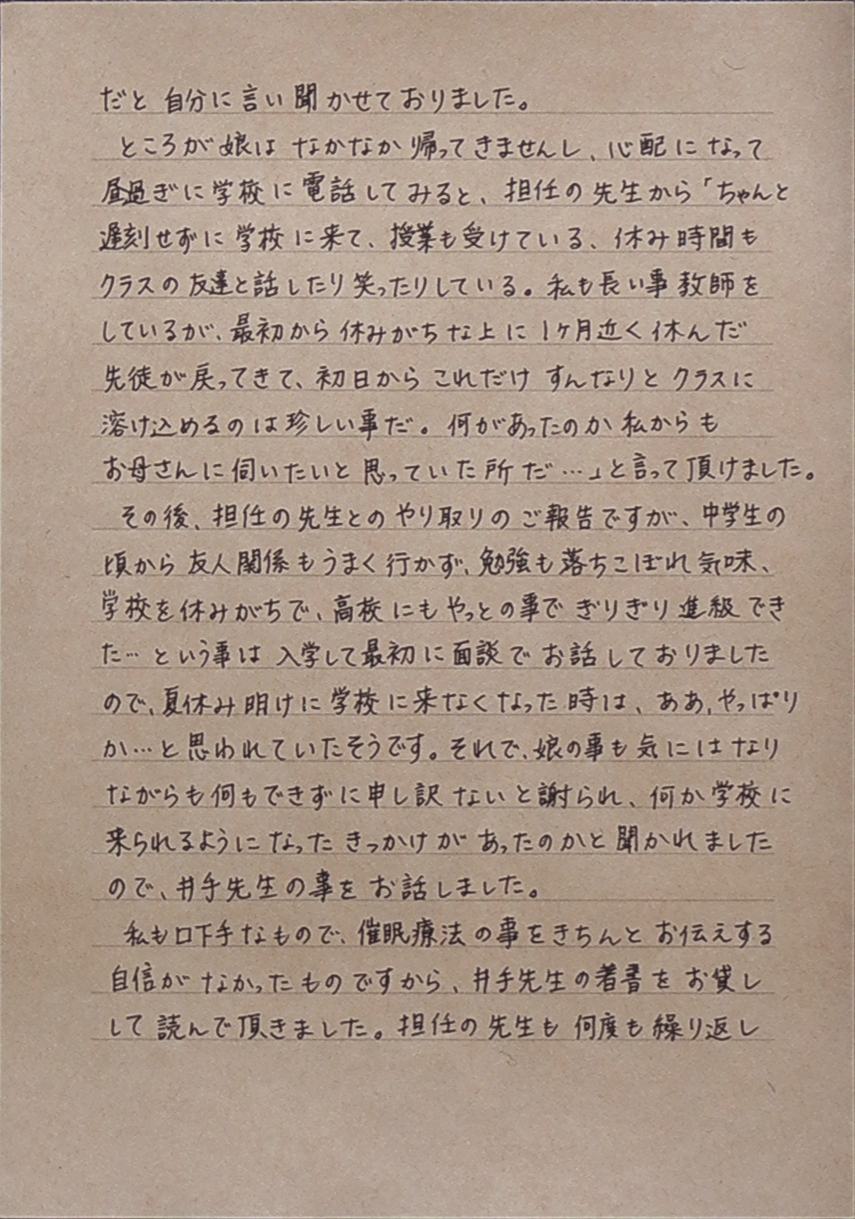 だと自分に言い聞かせておりました。
ところが娘はなかなか帰ってきませんし、心配になって
昼過ぎに学校に電話してみると、担任の先生から「ちゃんと
遅刻せずに学校に来て、授業も受けている、休み時間も
クラスの友達と話したり笑ったりしている。私も長い事教師を
しているが、最初から休みがちな上に1ヶ月近く休んだ
先徒が戻ってきて、初日からこれだけすんなりとクラスに
溶け込めるのは珍しい事だ。何があったのか私からも
お母さんに伺いたいと思っていた所だ…」と言って頂けました。
その後、担任の先生とのやり取りのご報告ですが、中学生の
頃から友人関係もうまく行かず、勉強も落ちこぼれ気味、
学校を休みがちで、高校にもやっとの事でぎりぎり進級でき
た…という事は入学して最初に面談でお話しておりました
ので、夏休み明けに学校に来なくなった時は、ああ、やっぱり
か…と思われていたそうです。それで、娘の事も気にはなり
ながらも何もできずに申し訳ないと謝られ、何か学校に
来られるようになったきっかけがあったのかと聞かれました
ので、井手先生の事をお話しました。
私も口下手なもので、催眠療法の事をきちんとお伝えする
自信がなかったものですから、井手先生の著書をお貸し
して読んで頂きました。担任の先生も何度も繰り返し